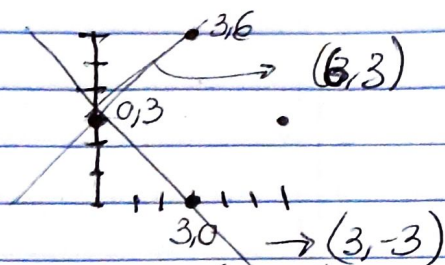 3,6
(6,3)
0,3
3,0
(3,-3)